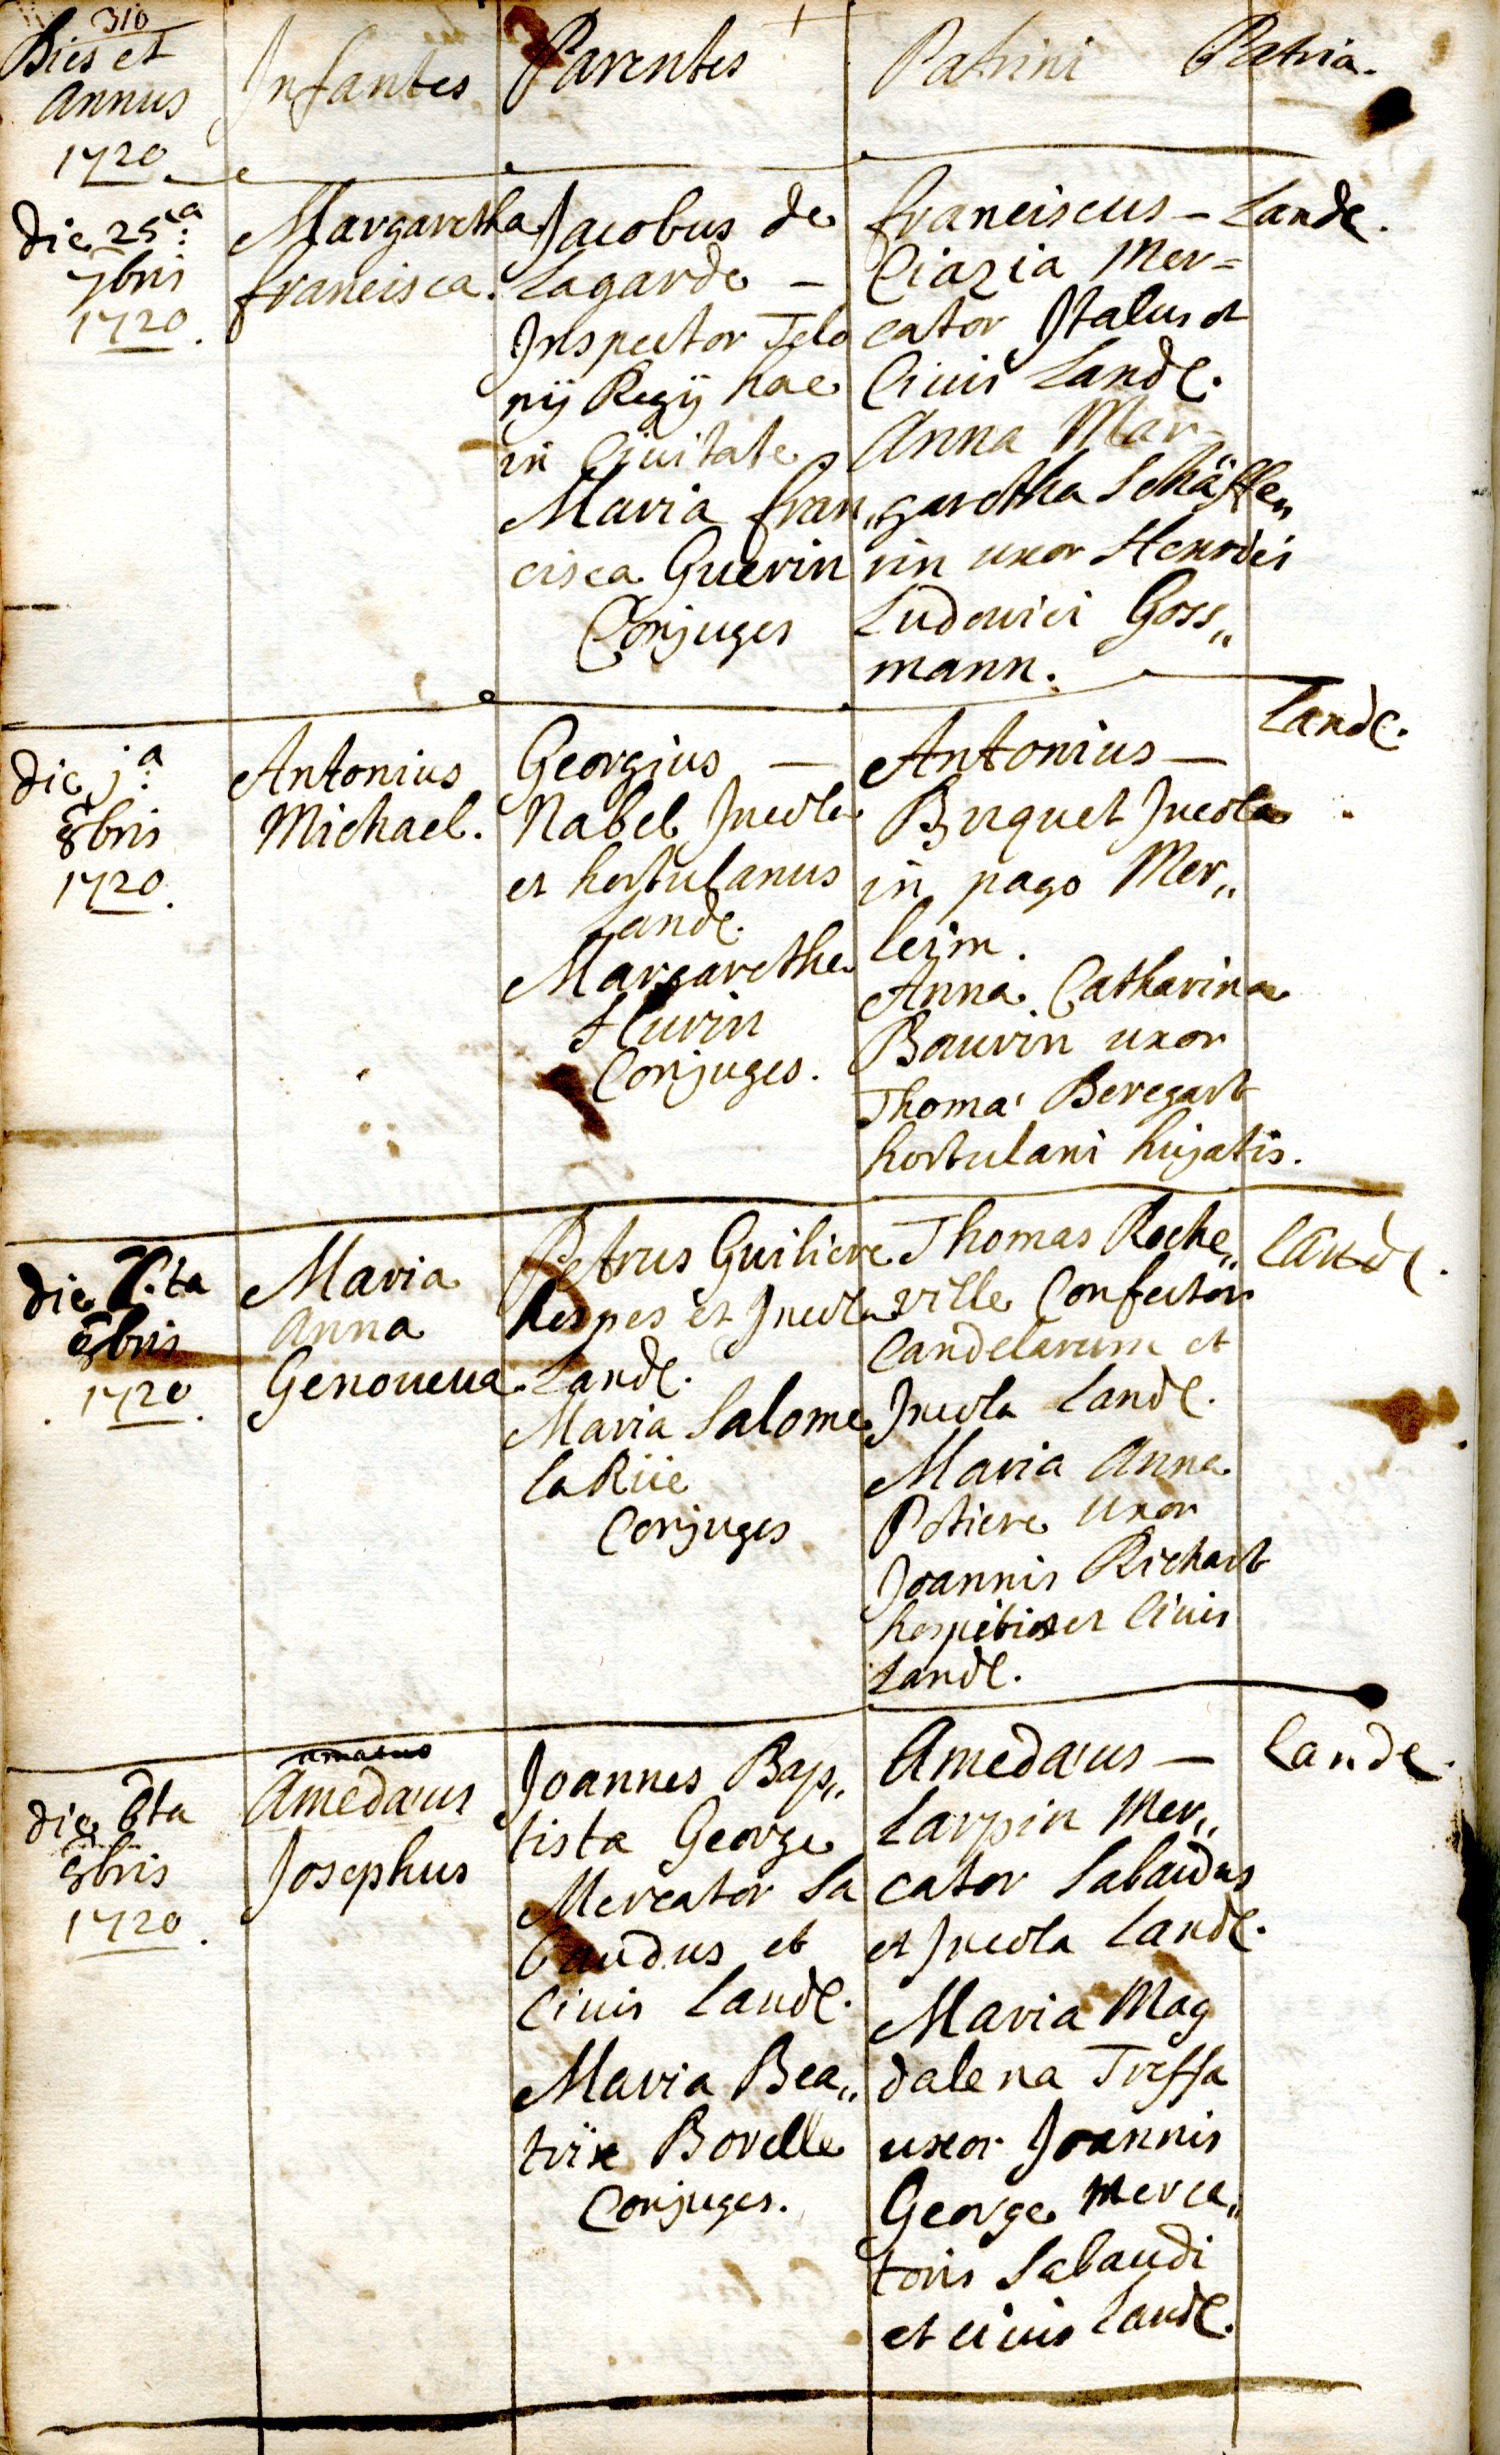 310
Dies et
Annus
1720
Infantes
Parentes
Patrini
Patria.
Die 25ta:
7bris
1720.
Margaretha
francisca.
Jacobus de
Lagarde –
Inspector Telo
nij Regij hac
in Civitate
Maria fran„
cisca Guerin
Conjuges
franciscus –
Ciazia Mer=
cator Italus et
Civis Landl.
Anna Mar„
garetha Schäffe„
rin uxor Henrici
Ludovici Goss„
mann.
Lande.
Die ja:
8bris
1720.
Antonius
Michael.
Georgius –
Nabel Incola
et hortulanus
Landl.
Margaretha
Hurin
Conjuges.
Antonius –
Buquet Incola
in pago Mer„
leim.
Anna Catharina
Bourin uxor
Thoma' Beregart
hortulani hujatis.
Landl.
Die 7.ta
8bris
1720.
Maria
Anna
Genoueua.
Petrus Guiliere
hospes et Incola
Landl.
Maria Salome
la Rüe
Conjuges
Thomas Roche„
ville Confector
Candelarum et
Incola Landl.
Maria Anna
Potiere uxor
Joannis Richart
hospitis et Civis
Landl.
Landl.
Die 6ta
8bris
1720.
amatus
Ameda'us
Josephus
Joannes Bap„
tista George
Mercator Sa
baudus et
Civis Landl.
Maria Bea„
trix Borelle
Conjuges.
Ameda'us –
Larpin Mer„
cator Sabaudus
et Incola Landl.
Maria Mag
dalena Treffa
uxor Joannis
George Merca„
toris Sabaudi
et civis Landl.
Lande.